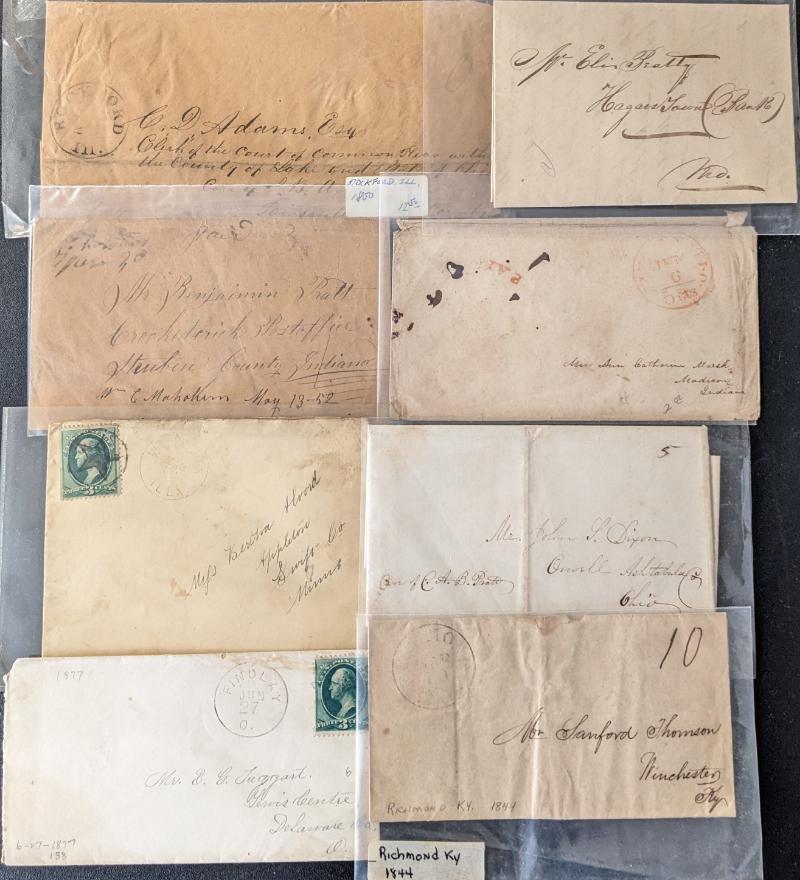 ROCKFORD
Ill.
C. D. Adams, Esq
Clerk of the Court of Common Pleas within
the County of Lake and
ROCKFORD, ILL,
1850
12.50
Mr. Elie Beatty
Hagers Town (Bank)
Md.
Paid 3
Mr Benjaimin Pratt
Postoffice
Steuben County Indiana
Wm C Mahokem May 13-52
PAID
9
Mrs Ann Catherine Marsh
Madison
Indiana
THREE 3 CENTS
ILL
Miss Bertha Alvord
Appleton
Swift Co
Minns
5
Mr. John S. Dixon
Orwell Ashtabula Co
Ohio
Car of C. A. B. Pratt
1877
FINDLAY
JUN
27
O.
THREE 3 CENTS
Mr. E. G. Taggart.
6
Lewis Centre
Delaware Co,
O.
6-27-1877
158
10
Mr Sanford Thomson
Winchester
Ky
RICHMOND KY. 1844
Richmond Ky
1844